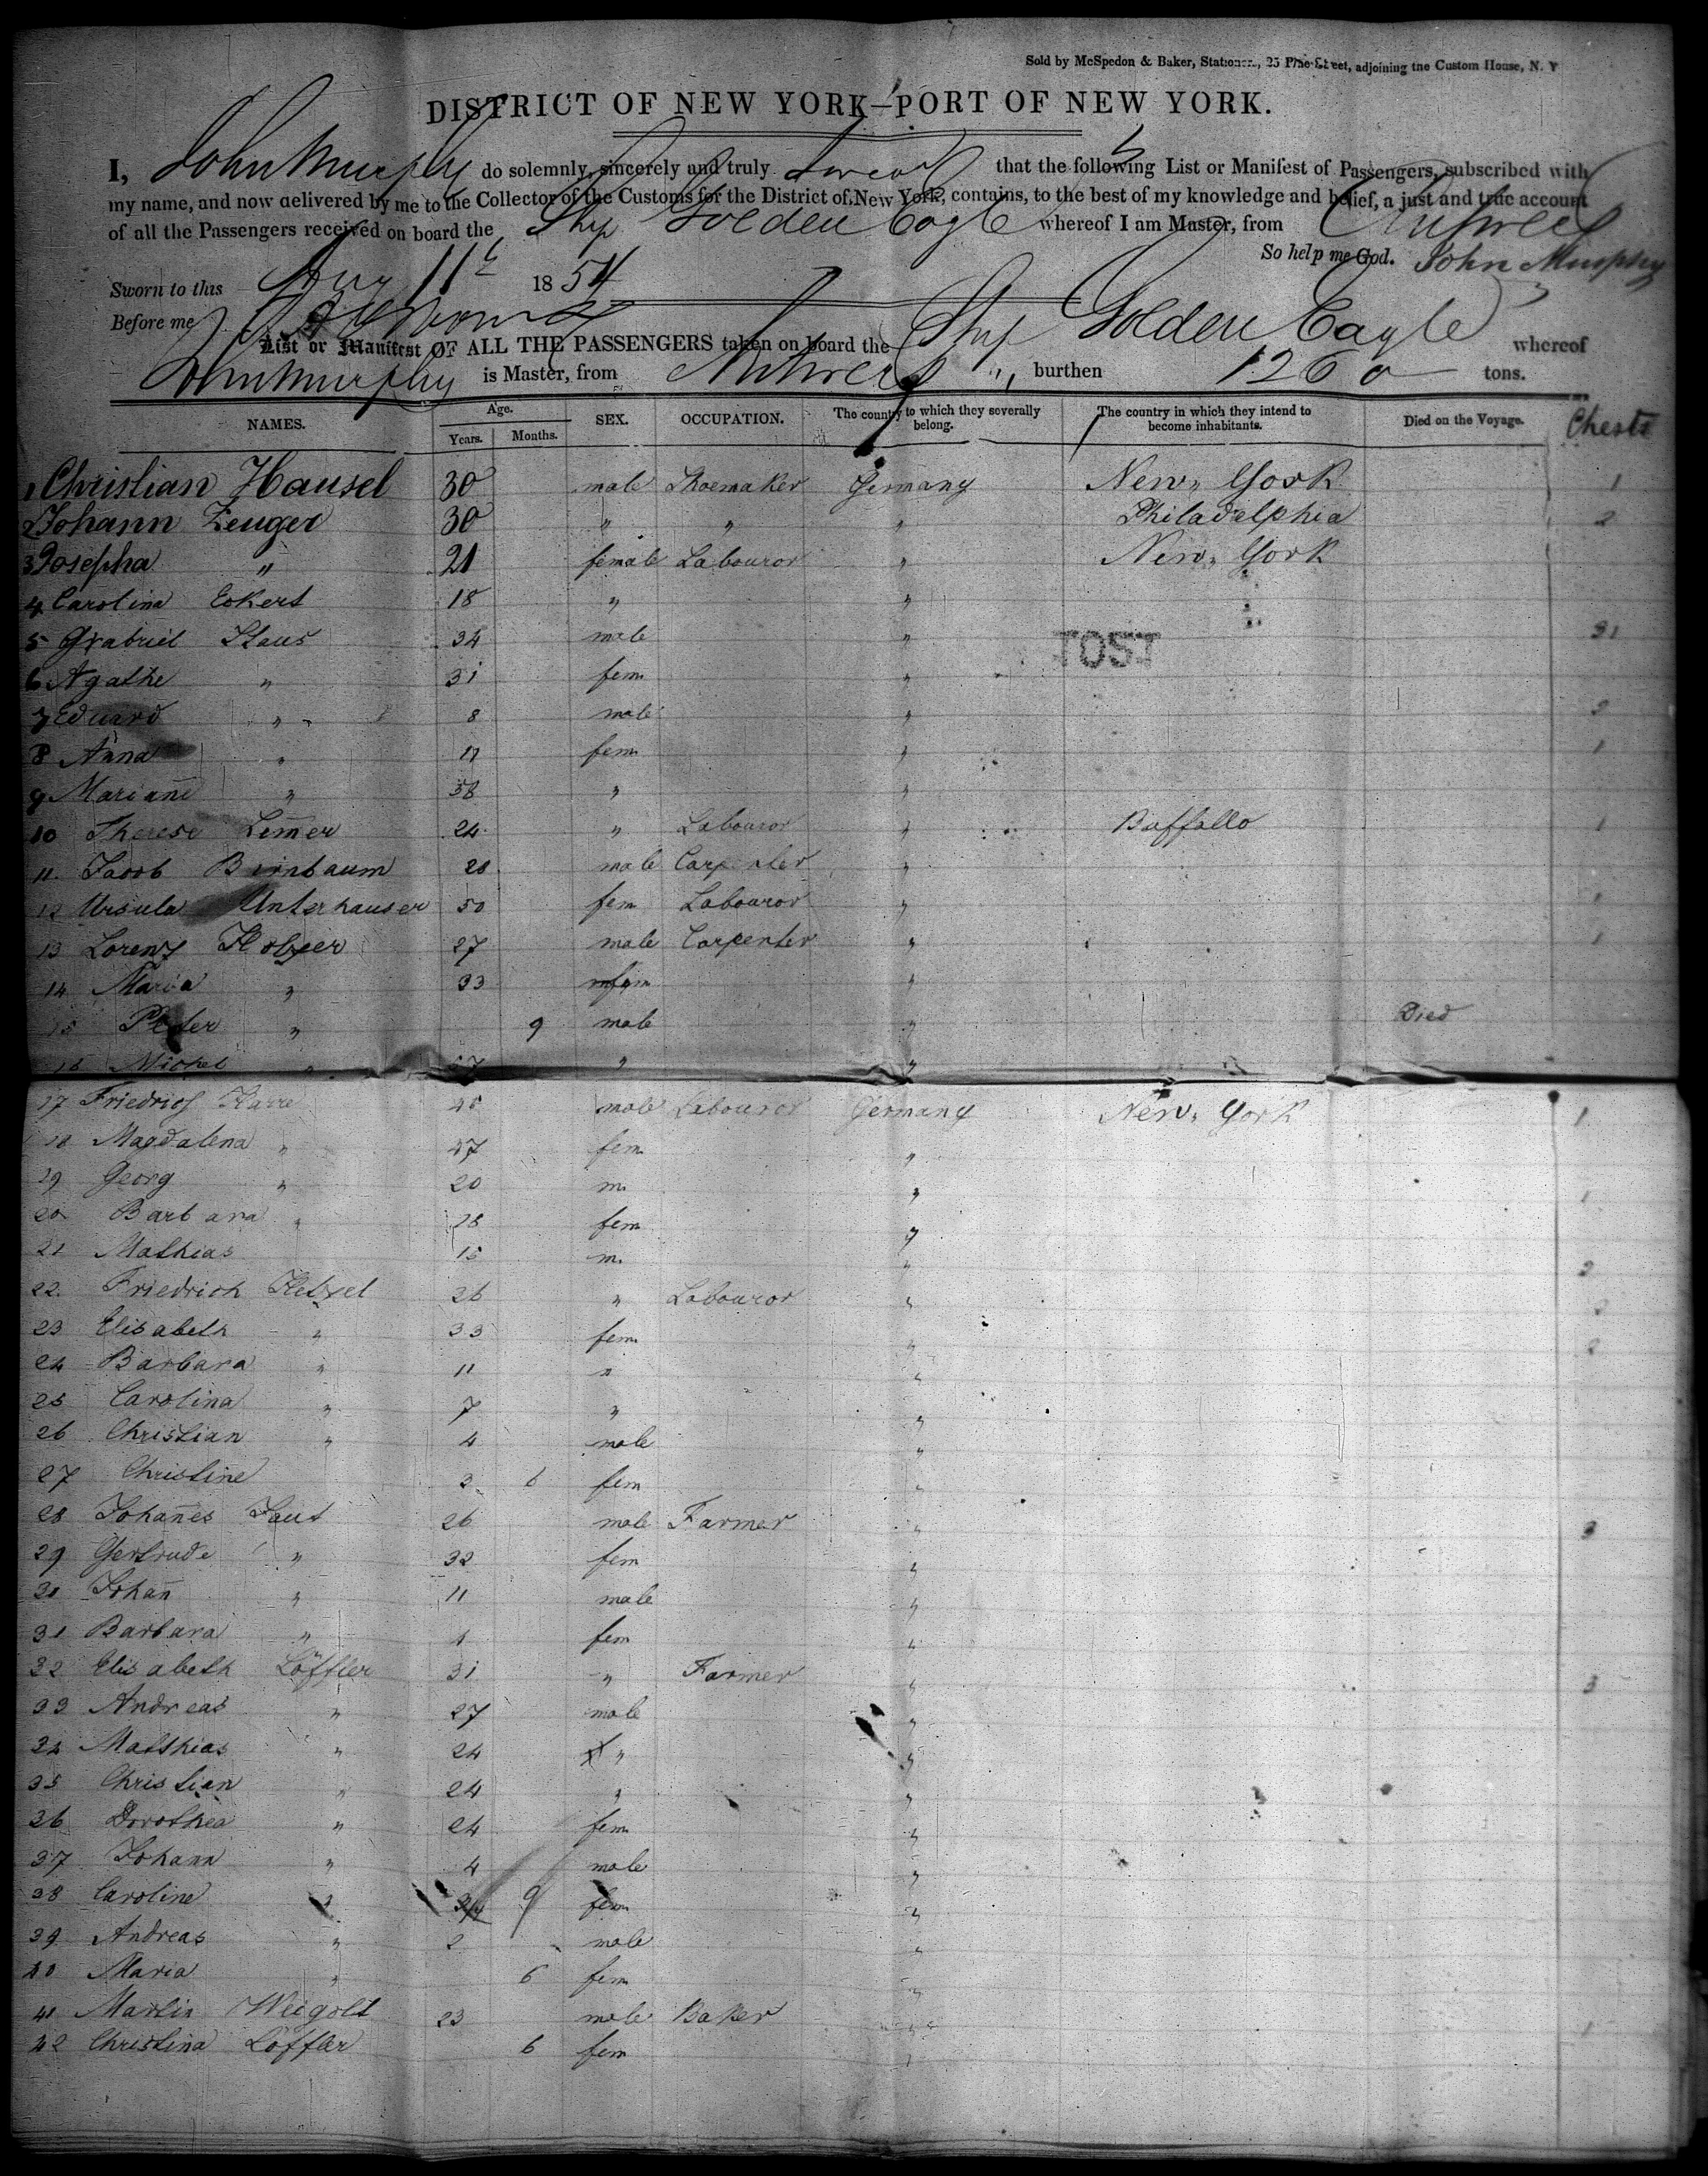 Sold by McSpedon & Baker, Stationers, 25 Pine Street, adjoining the Custom House, N. Y
DISTRICT OF NEW YORK—PORT OF NEW YORK.
I, John Murphy do solemnly, sincerely and truly swear that the following List or Manifest of Passengers, subscribed with
my name, and now delivered by me to the Collector of the Customs for the District of New York, contains, to the best of my knowledge and belief, a just and true account
of all the Passengers received on board the Ship Golden Eagle whereof I am Master, from Antwerp
So help me God. John Murphy
Sworn to this Aug 11th 1854
Before me
List or Manifest OF ALL THE PASSENGERS taken on board the Ship Golden Eagle whereof
John Murphy is Master, from Antwerp burthen 1260 tons.
NAMES. Age. Years. Months. SEX. OCCUPATION. The country to which they severally belong. The country in which they intend to become inhabitants. Died on the Voyage. Chests
1 Christian Hausel 30 male Shoemaker Germany New York 1
2 Johann Zeuger 30 " " " Philadelphia 2
3 Josepha " 21 female Labouror " New York
4 Carolina Eckert 18 " "
5 Grabriel Staus 34 male " 31
TOST
6 Agathe " 31 fem "
7 Eduard " 8 male "
8 Anna " 11 fem " 1
9 Mariane " 58 " "
10 Therese Lem̄er 24 " Labouror " Buffallo 1
11 Jacob Birnbaum 28 male Carpenter "
12 Ursula Unterhauser 50 fem Labouror " 1
13 Lorenz 27 male Carpenter " 1
14 Maria " 33 fem "
15 Peter " 9 male " Died
16 Michel " " "
17 Friedrich 48 male Labouror Germany New York 1
18 Magdalena " 47 fem "
19 Georg " 20 m. " 1
20 Barbara " 18 fem "
21 Mathias 15 m. " 2
22 Friedrich Hetzel 26 " Labouror "
23 Elisabeth " 33 fem " 2
24 Barbara " 11 " "
25 Carolina " 7 " "
26 Christian " 4 male "
27 Christine 2 6 fem "
28 Johan̄es Faut 26 male Farmer " 3
29 Gertrude " 32 fem "
30 Johan̄ " 11 male "
31 Barbara " 1 fem "
32 Elisabeth Löffler 31 " Farmer " 3
33 Andreas " 27 male "
34 Matthias " 24 " "
35 Christian " 24 " "
36 Dorothea " 24 fem "
37 Johann " 4 male "
38 Caroline " 3/4 9 fem "
39 Andreas " 2 male "
40 Maria " 6 fem "
41 Martin Weigolt 23 male Baker " 1
42 Christina Löffler 6 fem "